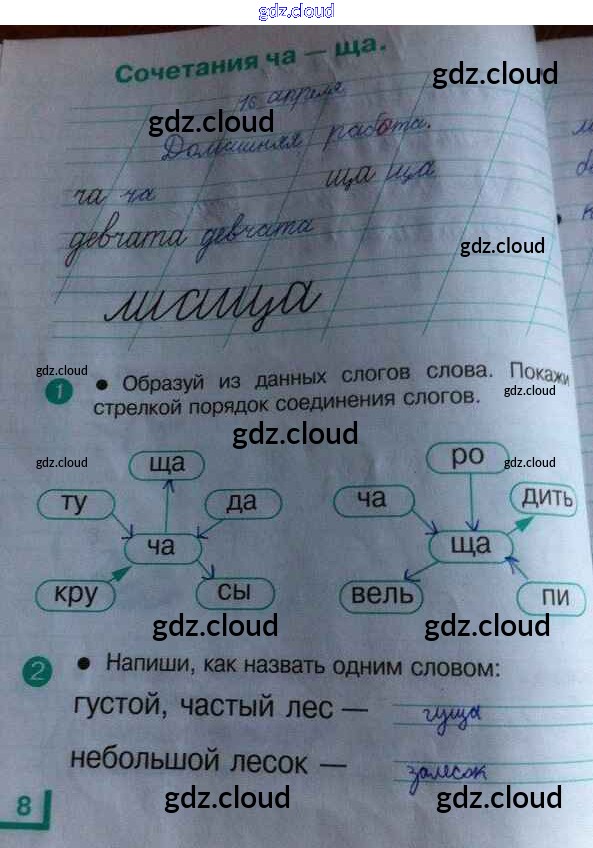 gdz.cloud
Сочетания ча — ща.
gdz.cloud
16 апреля
gdz.cloud
Домашняя работа.
ча ча ща ща
девчата девчата
gdz.cloud
gdz.cloud
1 • Образуй из данных слогов слова. Покажи
gdz.cloud
стрелкой порядок соединения слогов.
gdz.cloud
gdz.cloud ща ро gdz.cloud
ту да ча дить
ча ща
кру сы вель пи
gdz.cloud gdz.cloud
2 • Напиши, как назвать одним словом:
густой, частый лес — гуща
небольшой лесок — залесок
8 gdz.cloud gdz.cloud